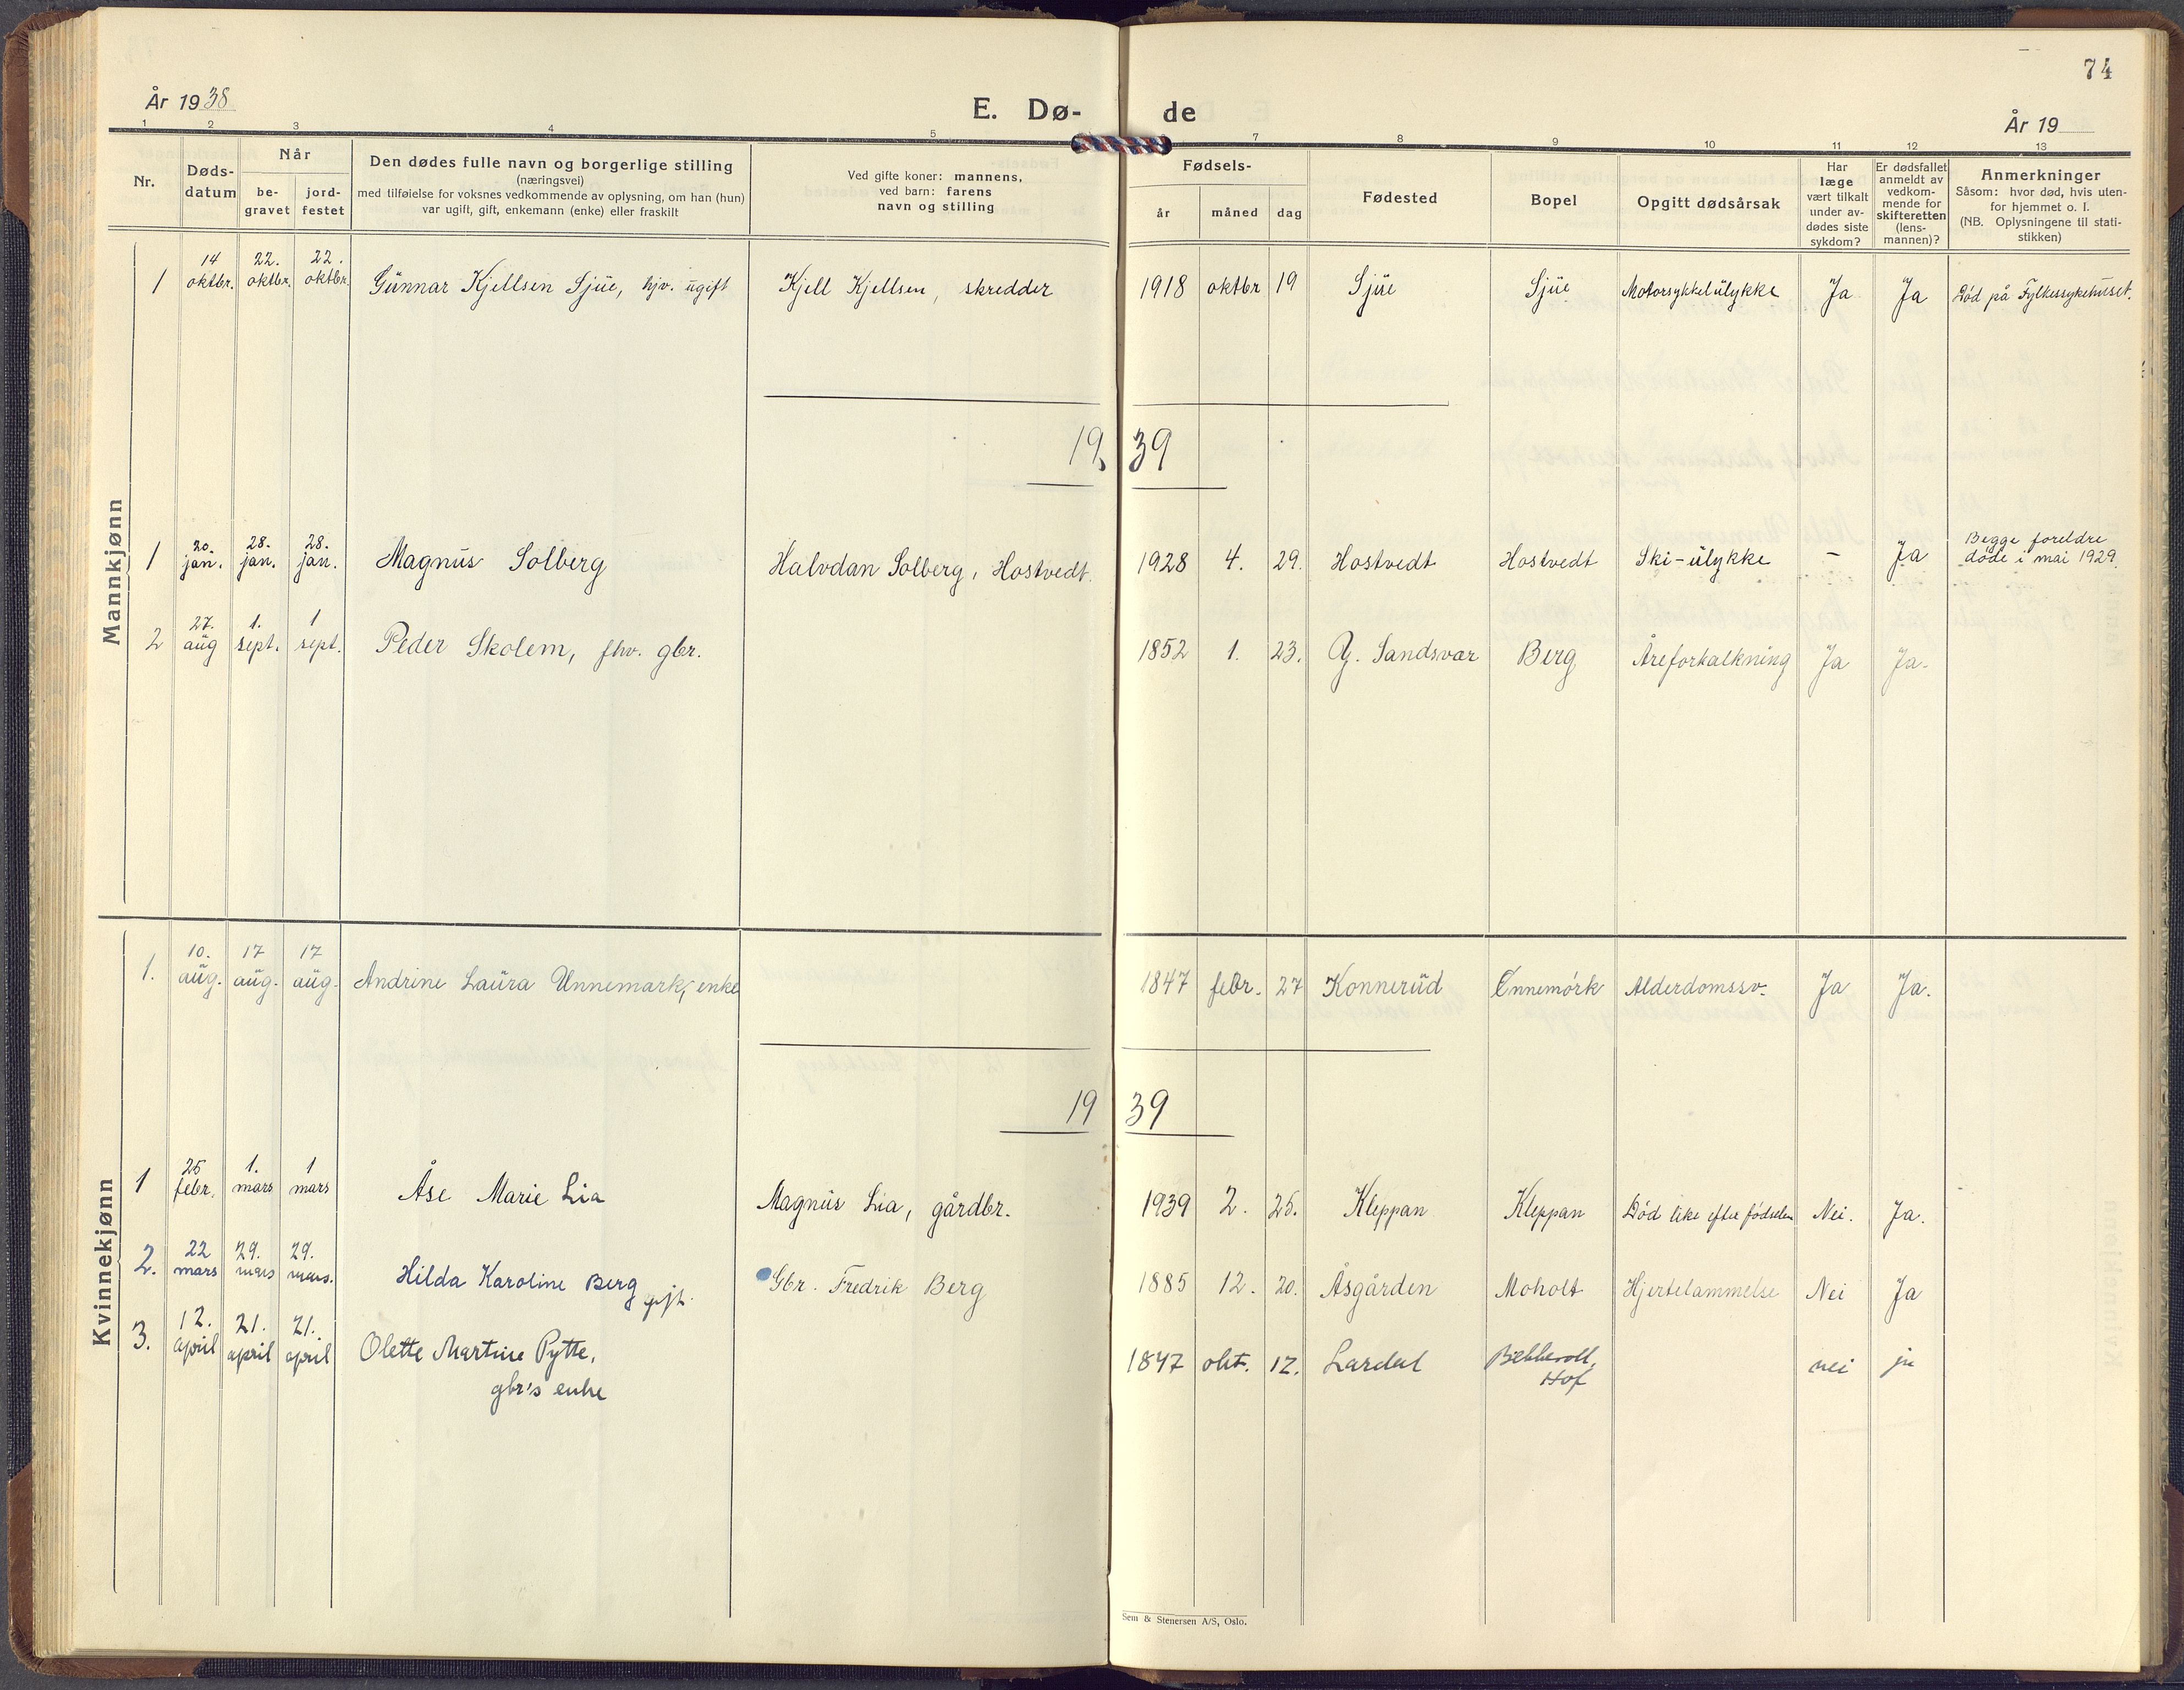 74
År 1938
E. Dø-de
År 19
1 2 3 4 5 7 8 9 10 11 12 13
Nr.
Døds-
datum
Når
be-
gravet
jord-
festet
Den dødes fulle navn og borgerlige stilling
(næringsvei)
med tilføielse for voksnes vedkommende av oplysning, om han (hun)
var ugift, gift, enkemann (enke) eller fraskilt
Ved gifte koner: mannens,
ved barn: farens
navn og stilling
Fødsels-
år måned dag
Fødested
Bopel
Opgitt dødsårsak
Har
læge
vært tilkalt
under av-
dødes siste
sykdom?
Er dødsfallet
anmeldt av
vedkom-
mende for
skifteretten
(lens-
mannen)?
Anmerkninger
Såsom: hvor død, hvis uten-
for hjemmet o. l.
(NB. Oplysningene til stati-
stikken)
Mannkjønn
14 22. 22.
1 oktbr. oktbr. oktbr. Gunnar Kjellsen Sjue, hjv. ugift Kjell Kjellsen, skredder 1918 oktbr 19 Sjue Sjue Motorsykkelulykke Ja Ja Død på Fylkessykehuset.
1939
20. 28. 28. Begge foreldre
1 jan. jan. jan. Magnus Solberg Halvdan Solberg, Hostvedt. 1928 4. 29. Hostvedt Hostvedt Ski-ulykke - Ja døde i mai 1929.
27. 1. 1
2 aug sept. sept. Peder Skolem, fhv. gbr. 1852 1. 23. Y. Sandsvær Berg Åreforkalkning Ja Ja.
Kvinnekjønn
10. 17 17
1. aug. aug. aug. Andrine Laura Unnemark, enke 1847 febr. 27 Konnerud Ønnemørk Alderdomssv. Ja Ja.
1939
25 1. 1
1 febr. mars mars Åse Marie Lia Magnus Lia, gårdbr. 1939 2. 25. Kleppan Kleppan Død like efter fødselen Nei. Ja.
22 29. 29.
2. mars mars mars. Hilda Karoline Berg gift. Gbr. Fredrik Berg 1885 12. 20. Åsgården Moholt Hjertelammelse Nei Ja
12. 21. 21.
3. april april april Olette Martine Pytte, 1847 okt. 12. Lardal nei ja
gbr's enke Hof
Sem & Stenersen A/S, Oslo.